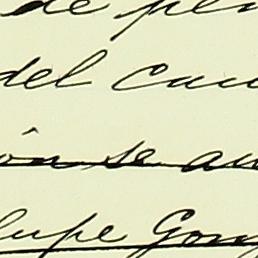 de pen
del cuu
ón se au
lupe Gon